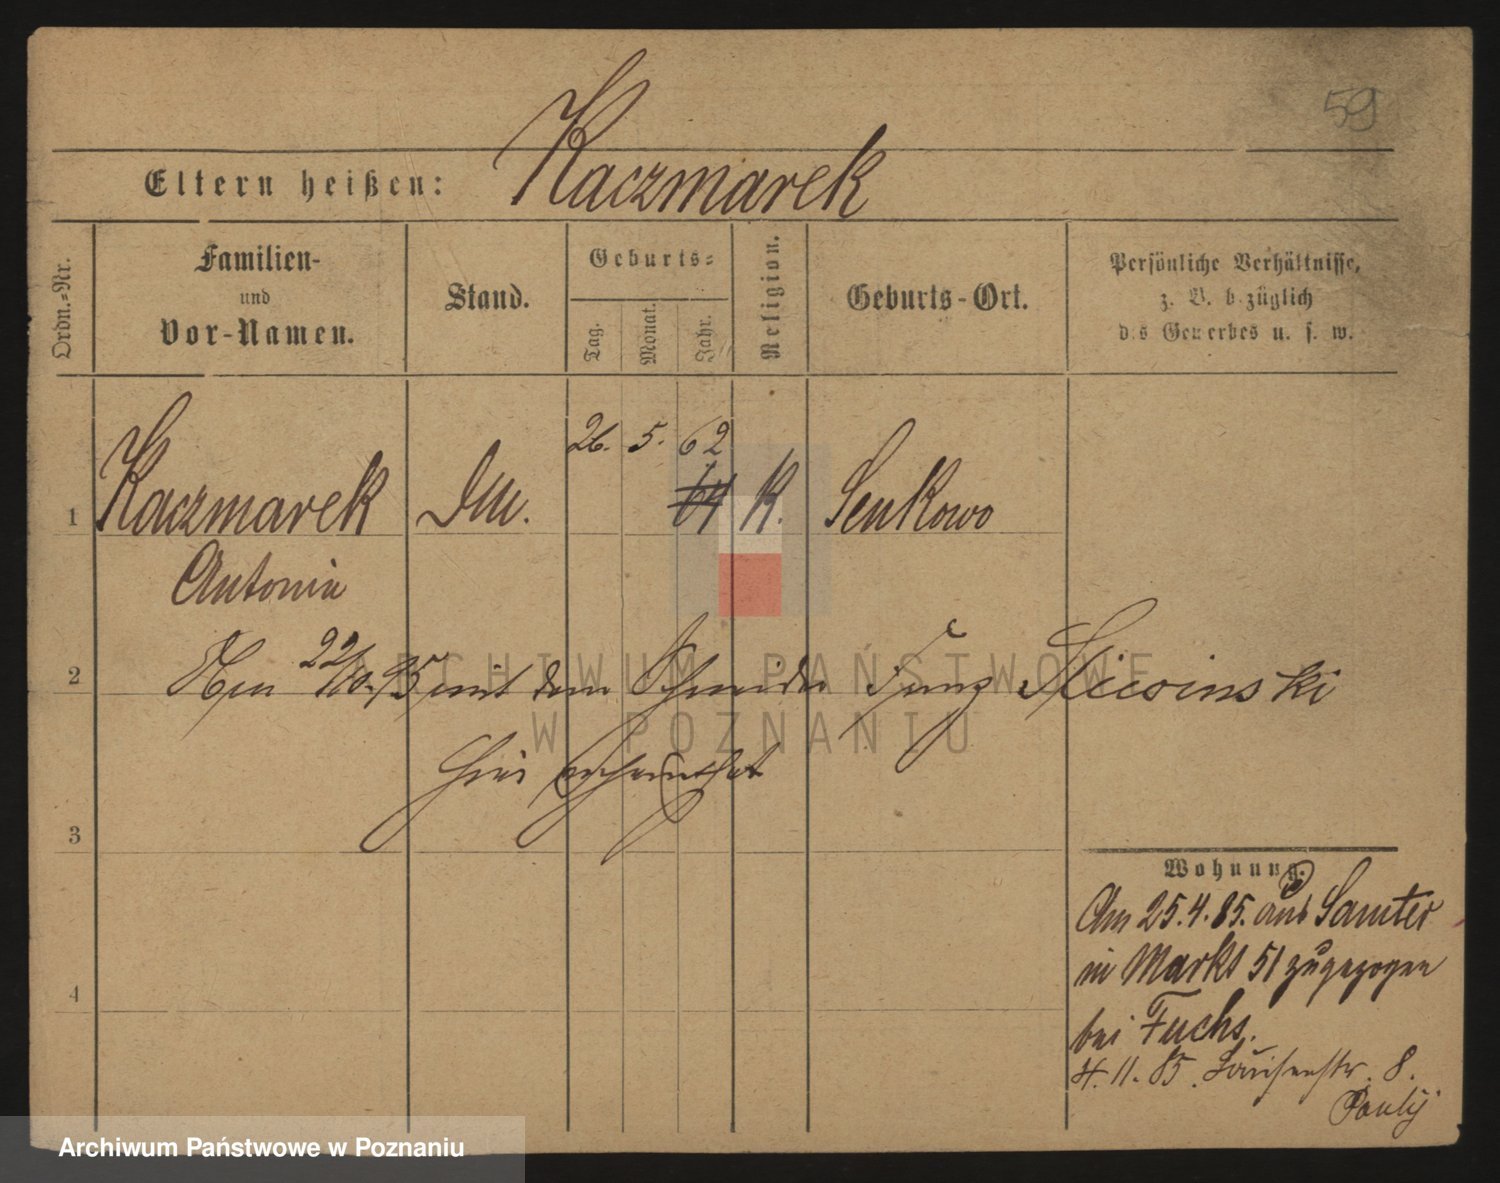 59
Eltern heißen: Kaczmarek
Ordn.-Nr.
Familien-
und
Vor-Namen.
Stand.
Geburts-
Tag.
Monat.
Jahr.
Religion.
Geburts-Ort.
Persönliche Verhältnisse,
z. B. bezüglich
des Gewerbes u. s. w.
26. 5. 62
1 Kaczmarek 64 K. Senkowo
Antonie
2 22/10. 95 mit dem Schneider Franz
hier verheirathet
3
4
Wohnung.
Am 25.4.85. aus Samter
in Markt 51 zugezogen
bei Fuchs.
4. 11. 85. Louisenstr. 8.
Pauly
ARCHIWUM PAŃSTWOWE
W POZNANIU
Archiwum Państwowe w Poznaniu